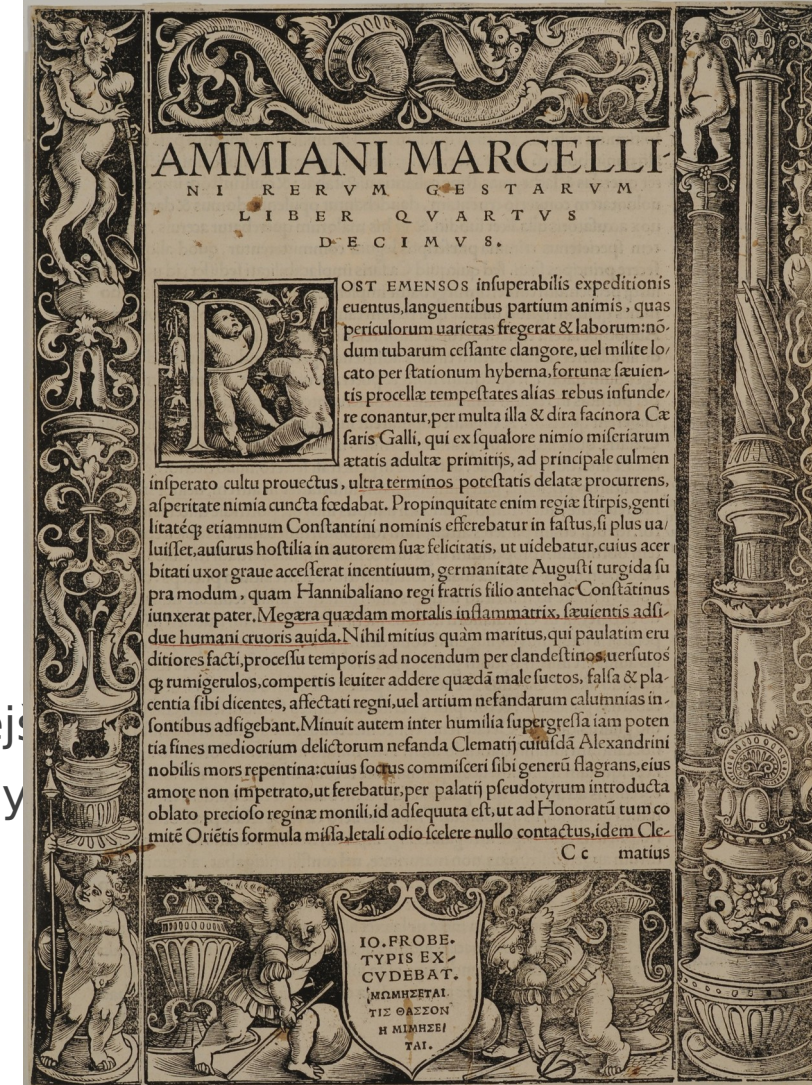 AMMIANI MARCELLI-
NI RERVM GESTARVM
LIBER QVARTVS
DECIMVS.
POST EMENSOS inſuperabilis expeditionis
euentus,languentibus partium animis, quas
periculorum uarietas fregerat & laborum:nō-
dum tubarum ceſſante clangore, uel milite lo/
cato per ſtationum hyberna,fortunæ ſæuien-
tis procellæ tempeſtates alias rebus infunde/
re conantur,per multa illa & dira facinora Cæ
ſaris Galli, qui ex ſqualore nimio miſeriarum
ætatis adultæ primitijs, ad principale culmen
inſperato cultu prouectus, ultra terminos poteſtatis delatæ procurrens,
aſperitate nimia cuncta fœdabat. Propinquitate enim regiæ ſtirpis,genti
litatéq; etiamnum Conſtantini nominis efferebatur in faſtus,ſi plus ua/
luiſſet,auſurus hoſtilia in autorem ſuæ felicitatis, ut uidebatur,cuius acer
bitati uxor graue acceſſerat incentiuum, germanitate Auguſti turgida ſu
pra modum, quam Hannibaliano regi fratris filio antehac Conſtātinus
iunxerat pater, Megæra quædam mortalis inflammatrix, ſæuientis adſi-
due humani cruoris auida. Nihil mitius quàm maritus,qui paulatim eru
ditiores facti,proceſſu temporis ad nocendum per clandeſtinos,uerſutos
q; rumigerulos,compertis leuiter addere quædā male ſuetos, falſa & pla-
centia ſibi dicentes, affectati regni,uel artium nefandarum calumnias in-
ſontibus adfigebant. Minuit autem inter humilia ſupergreſſa iam poten
tia fines mediocrium delictorum nefanda Clematij cuiuſdā Alexandrini
nobilis mors repentina:cuius ſocrus commiſceri ſibi generū flagrans,eius
amore non impetrato,ut ferebatur,per palatij pſeudotyrum introducta
oblato precioſo reginæ monili,id adſequuta eſt, ut ad Honoratū tum co
mitē Oriētis formula miſſa,letali odio ſcelere nullo contactus,idem Cle-
C c matius
IO.FROBE.
TYPIS EX-
CVDEBAT.
ΜΩΜΗΣΕΤΑΙ
ΤΙΣ ΘΑΣΣΟΝ
Η ΜΙΜΗΣΕΙ
ΤΑΙ.
y